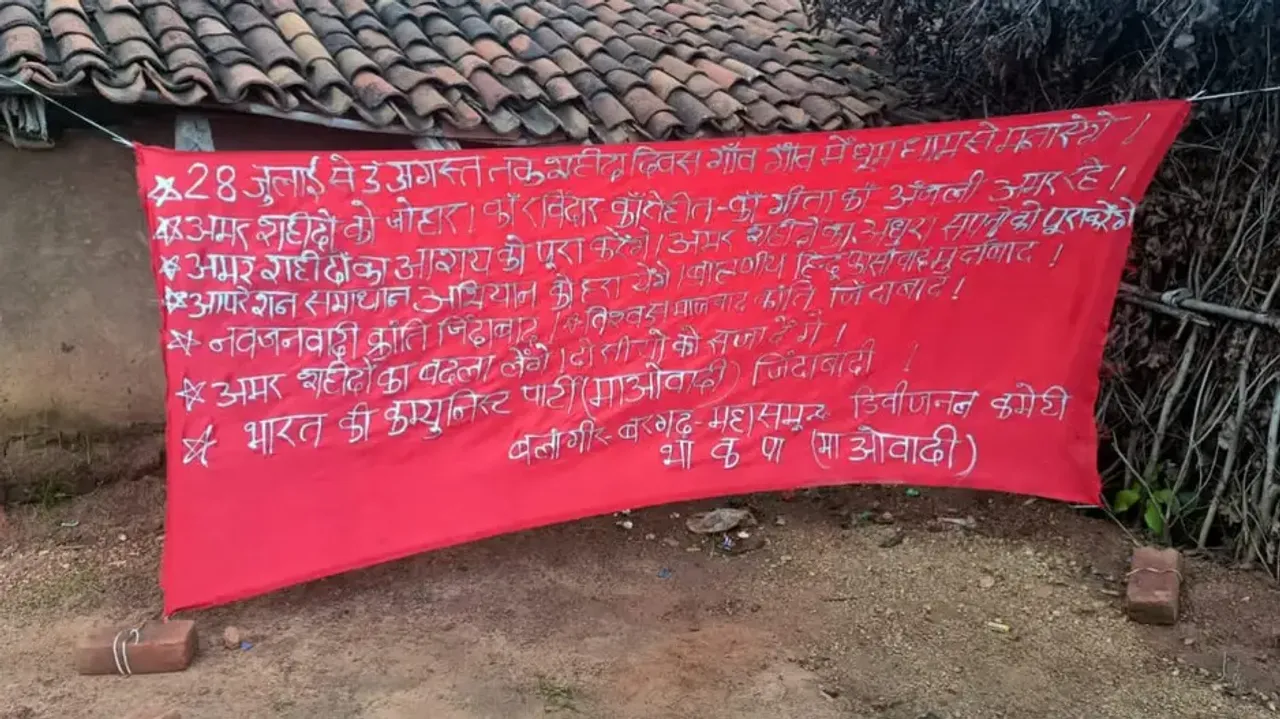 ★28 जुलाई से 3 अगस्त तक शहीद दिवस गाँव गाँव में धूम धाम से मनायेंगे !
★अमर शहीदों को जोहार। काॅ रविंदार काॅ रोहीत-काॅ गीता काॅ अँजली अमर रहे !
★अमर शहीदों का आशय को पूरा करेंगे। अमर शहीदों का अधुरा सपनो को पूरा करेंगे
★आपरेशन समाधान अभियान को हरा येंगे। ब्राह्मणीय हिन्दू फासीवाद मुर्दाबाद !
★ नवजनवादी क्रांति जिंदाबाद। ★विश्व समाजवाद क्रांति, जिंदाबाद !
★ अमर शहीदों का बदला लेंगे। दोसीयो को सजा देंगे !
★ भारत की कम्युनिस्ट पार्टी (माओवादी) जिंदाबादी !
बलांगीर-बरगढ़-महासमुन्द डिवीजनन कमेटी
भा क पा (माओवादी)